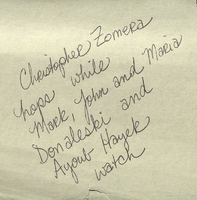 Christopher Zomera
hops while
Mark, John and Maria
Donaleski and
Ayoub Hayek
watch